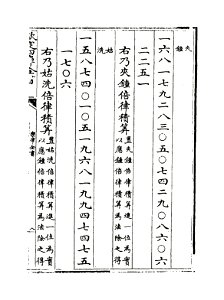 夾鍾
一六八一七九二八三〇五〇七四二九〇八六〇六
二二五一
右乃夾鍾倍律積筭
置夾鍾倍律積筭進一位為實
以應鍾倍律積筭為法除之得
姑洗
一五八七四〇一〇五一九六八一九九四七四七五
一七〇六
右乃姑洗倍律積筭
置姑洗倍律積筭進一位為實
以應鍾倍律積筭為法除之得